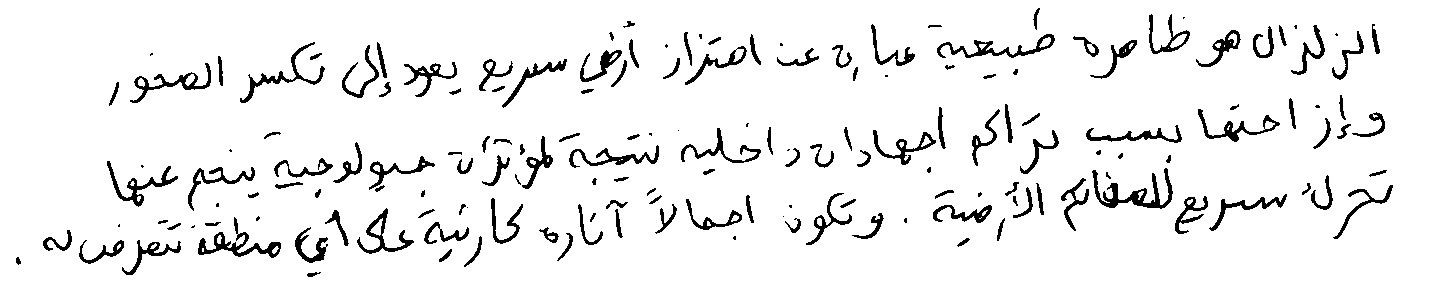 الزلزال هو ظاهرة طبيعية عبارة عن اهتزاز أرضي سريع يعود إلى تكسر الصخور
وإزاحتها بسبب تراكم اجهادات داخلية نتيجة لمؤثرات جيولوجية ينجم عنها
تحرك سريع للصفائح الأرضية . وتكون اجمالاً آثاره كارثية على أي منطقة تتعرض له .